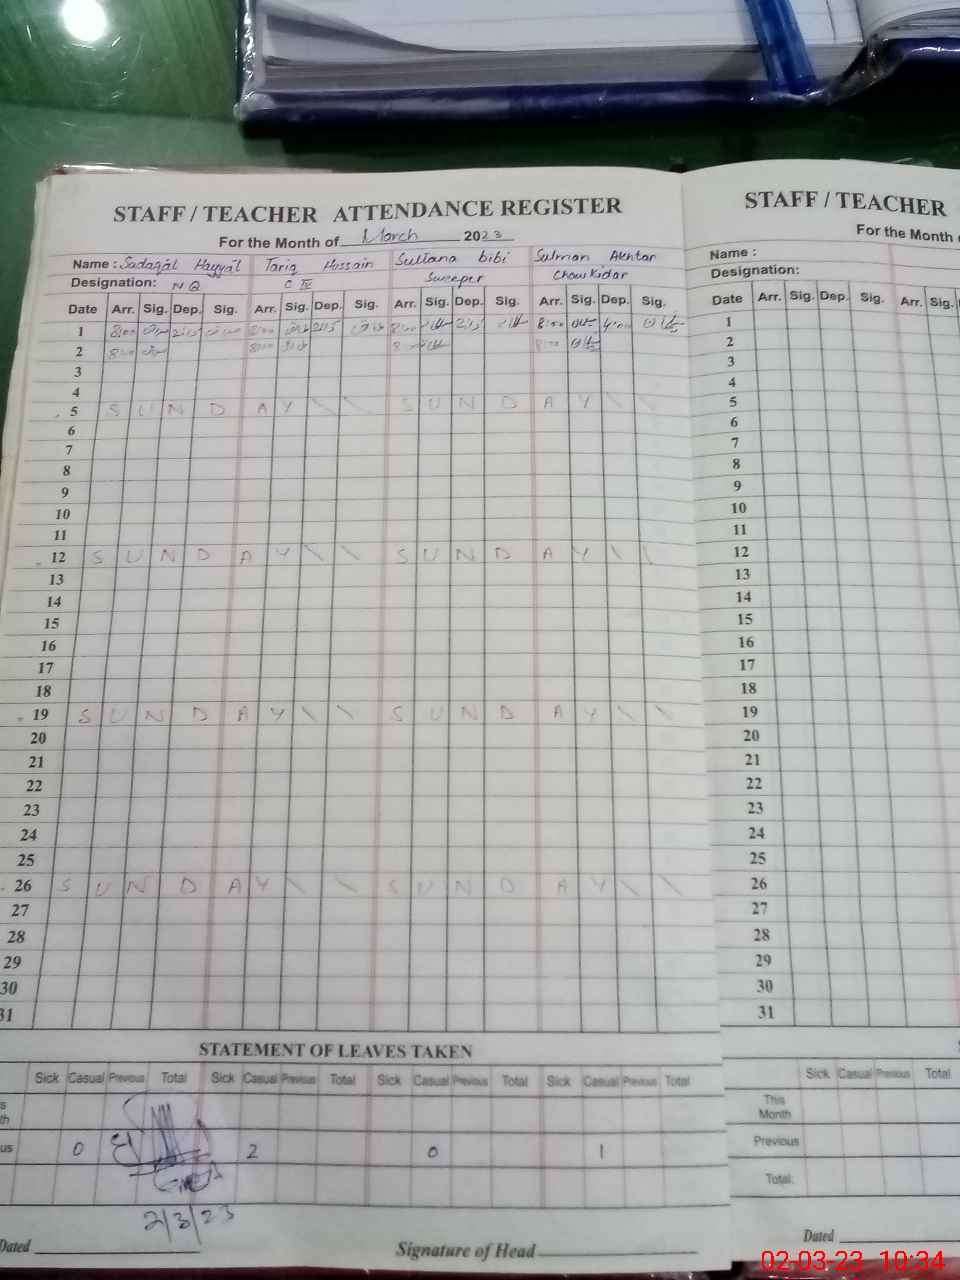 STAFF / TEACHER ATTENDANCE REGISTER
For the Month of March 2023
Name : Sadaqat Hayyat Tariq Hussain Sultana bibi Sulman Akhtar
Designation: N Q C IV Sweeper Chowkidar
Date Arr. Sig. Dep. Sig. Arr. Sig. Dep. Sig. Arr. Sig. Dep. Sig. Arr. Sig. Dep. Sig.
1 8:00 2:15 8:00 2:15 8:00 2:15 8:00 4:00
2 8:00 8:00 8:00 8:00
3
4
5 S U N D A Y \ \ S U N D A Y \ \
6
7
8
9
10
11
12 S U N D A Y \ \ S U N D A Y \ \
13
14
15
16
17
18
19 S U N D A Y \ \ S U N D A Y \ \
20
21
22
23
24
25
26 S U N D A Y \ \ S U N D A Y \ \
27
28
29
30
31
STATEMENT OF LEAVES TAKEN
Sick Casual Previous Total Sick Casual Previous Total Sick Casual Previous Total Sick Casual Previous Total
0 2 0 1
2/3/23
Dated Signature of Head
STAFF / TEACHER
For the Month
Name :
Designation:
Date Arr. Sig. Dep. Sig. Arr. Sig.
1
2
3
4
5
6
7
8
9
10
11
12
13
14
15
16
17
18
19
20
21
22
23
24
25
26
27
28
29
30
31
Sick Casual Previous Total
This
Month
Previous
Total:
Dated
02-03-23 10:34